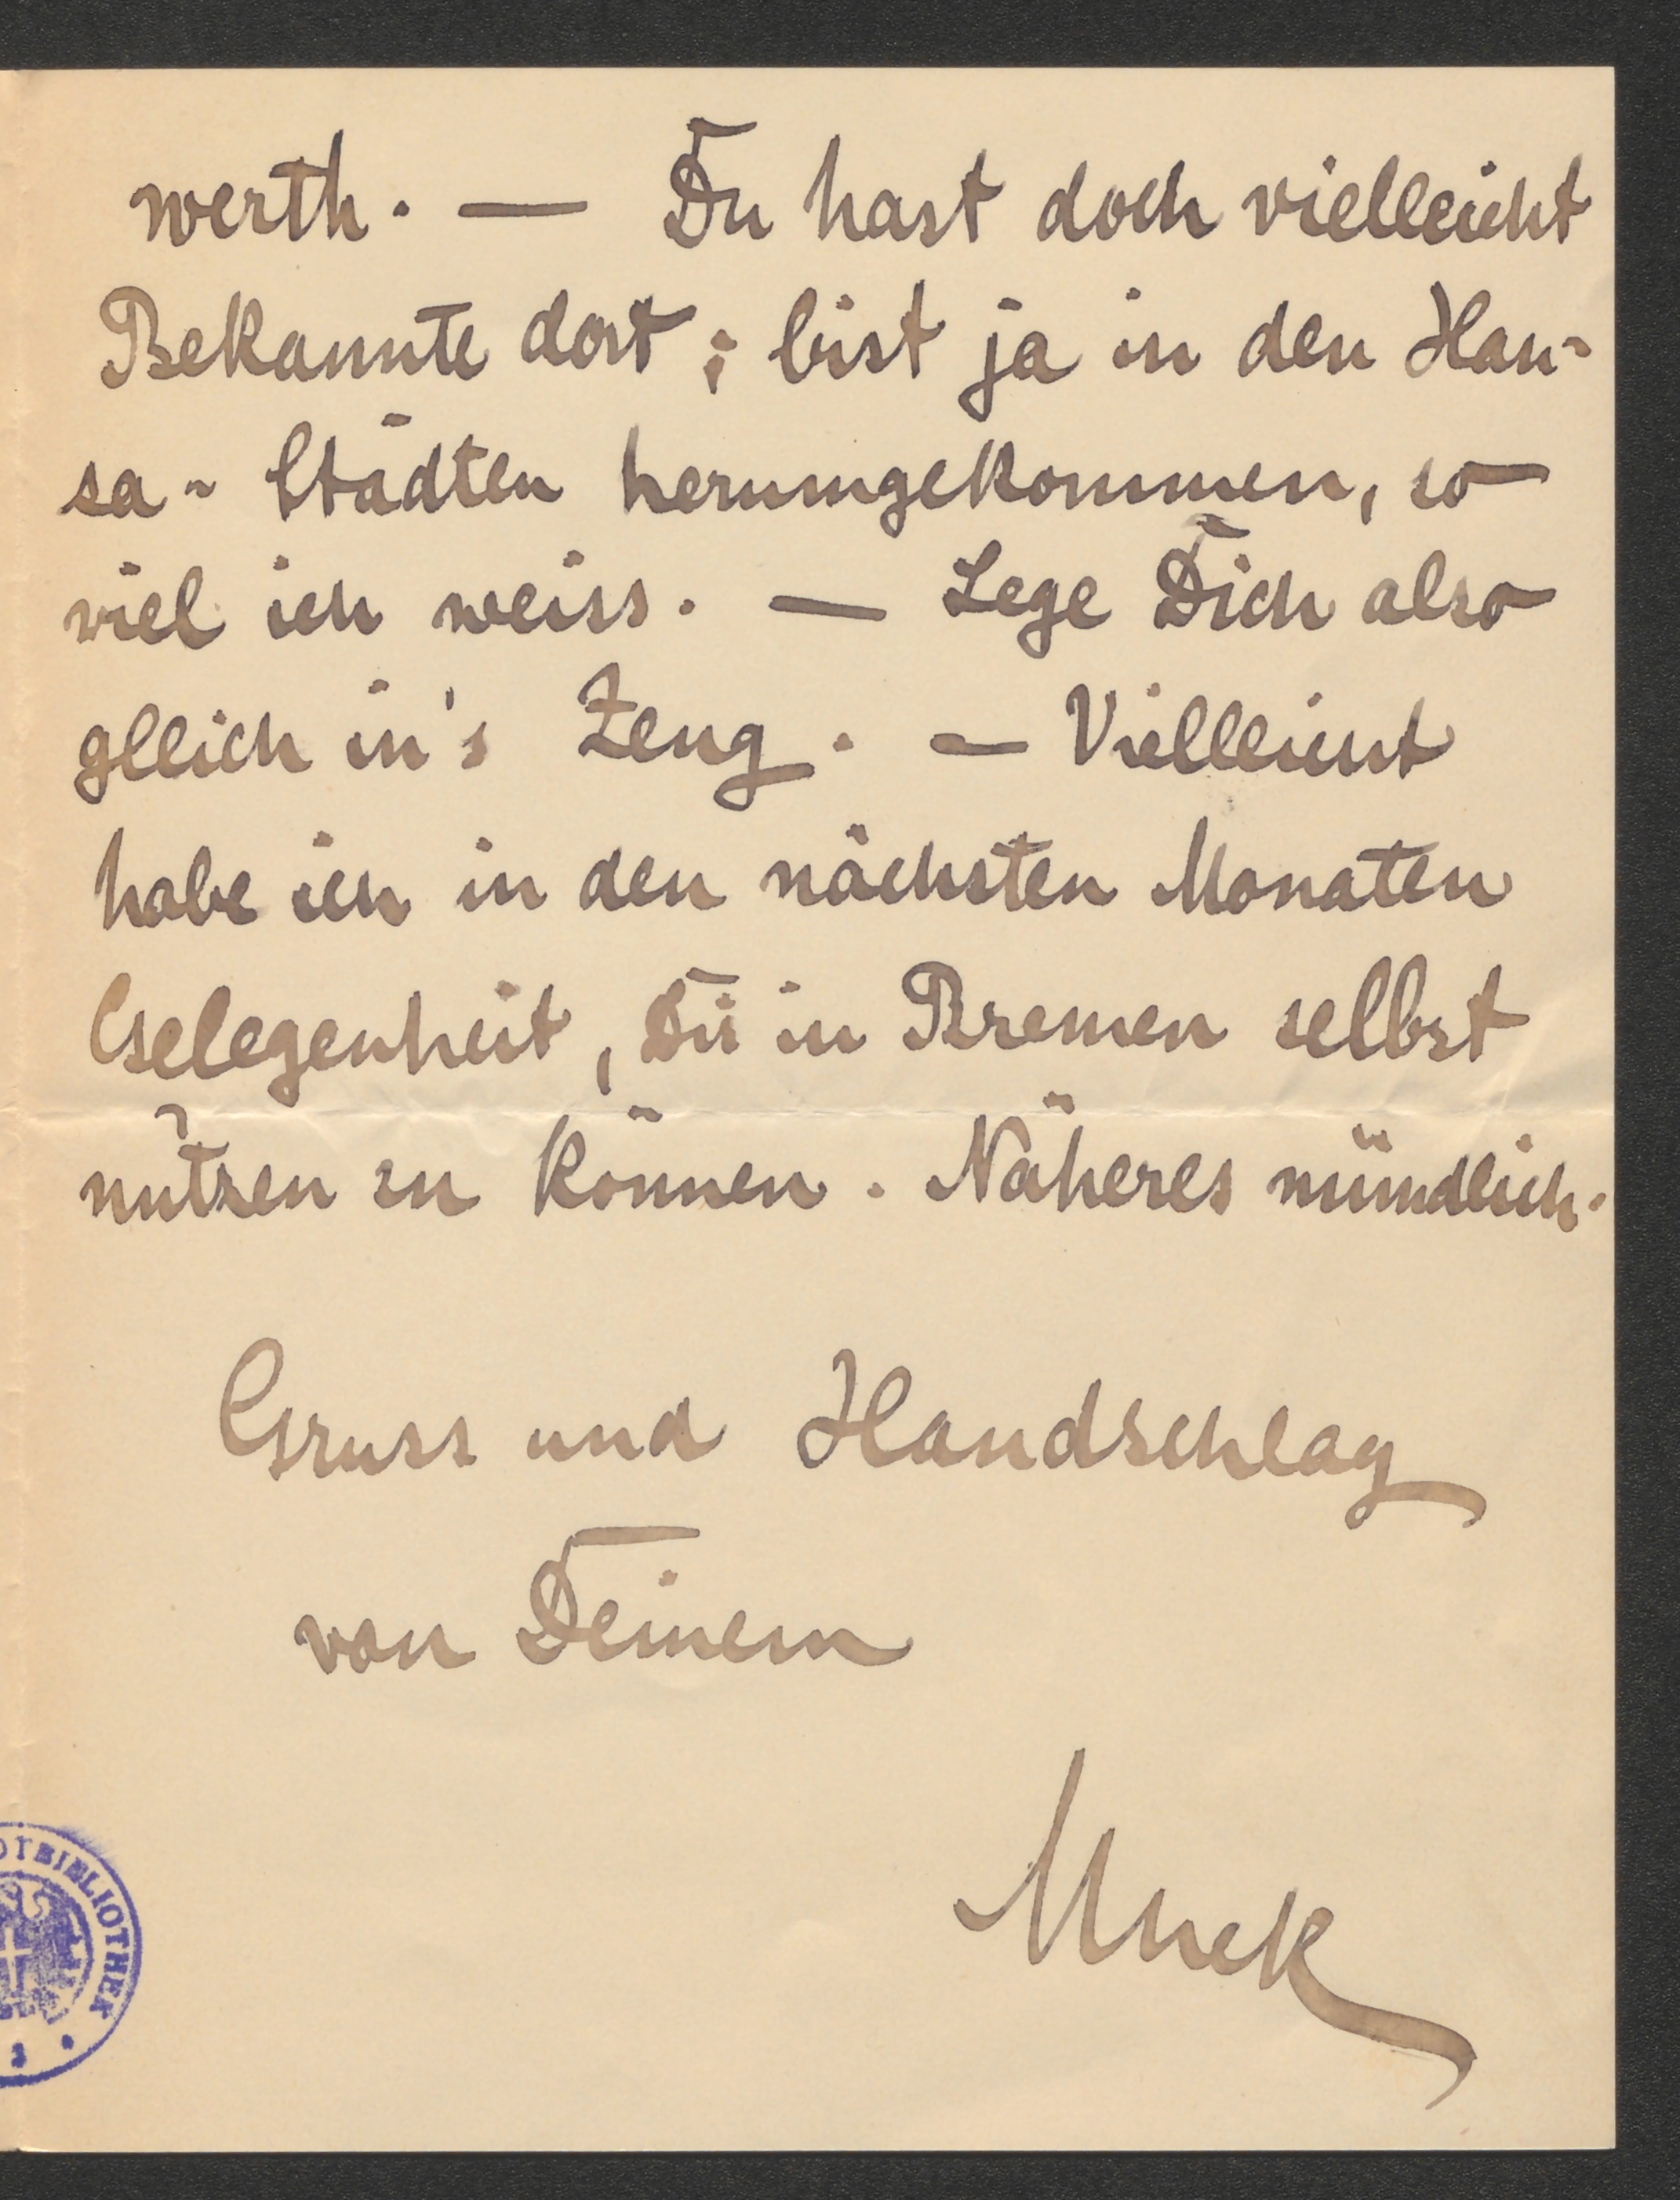 werth. — Du hast doch vielleicht
Bekannte dort; bist ja in den Han-
sa-Städten herumgekommen, so
viel ich weiss. — Lege Dich also
gleich in's Zeug. — Vielleicht
habe ich in den nächsten Monaten
Gelegenheit, Dir in Bremen selbst
nützen zu können. Näheres mündlich.
Gruss und Handschlag
von Deinem
Muck
BIBLIOTHEK